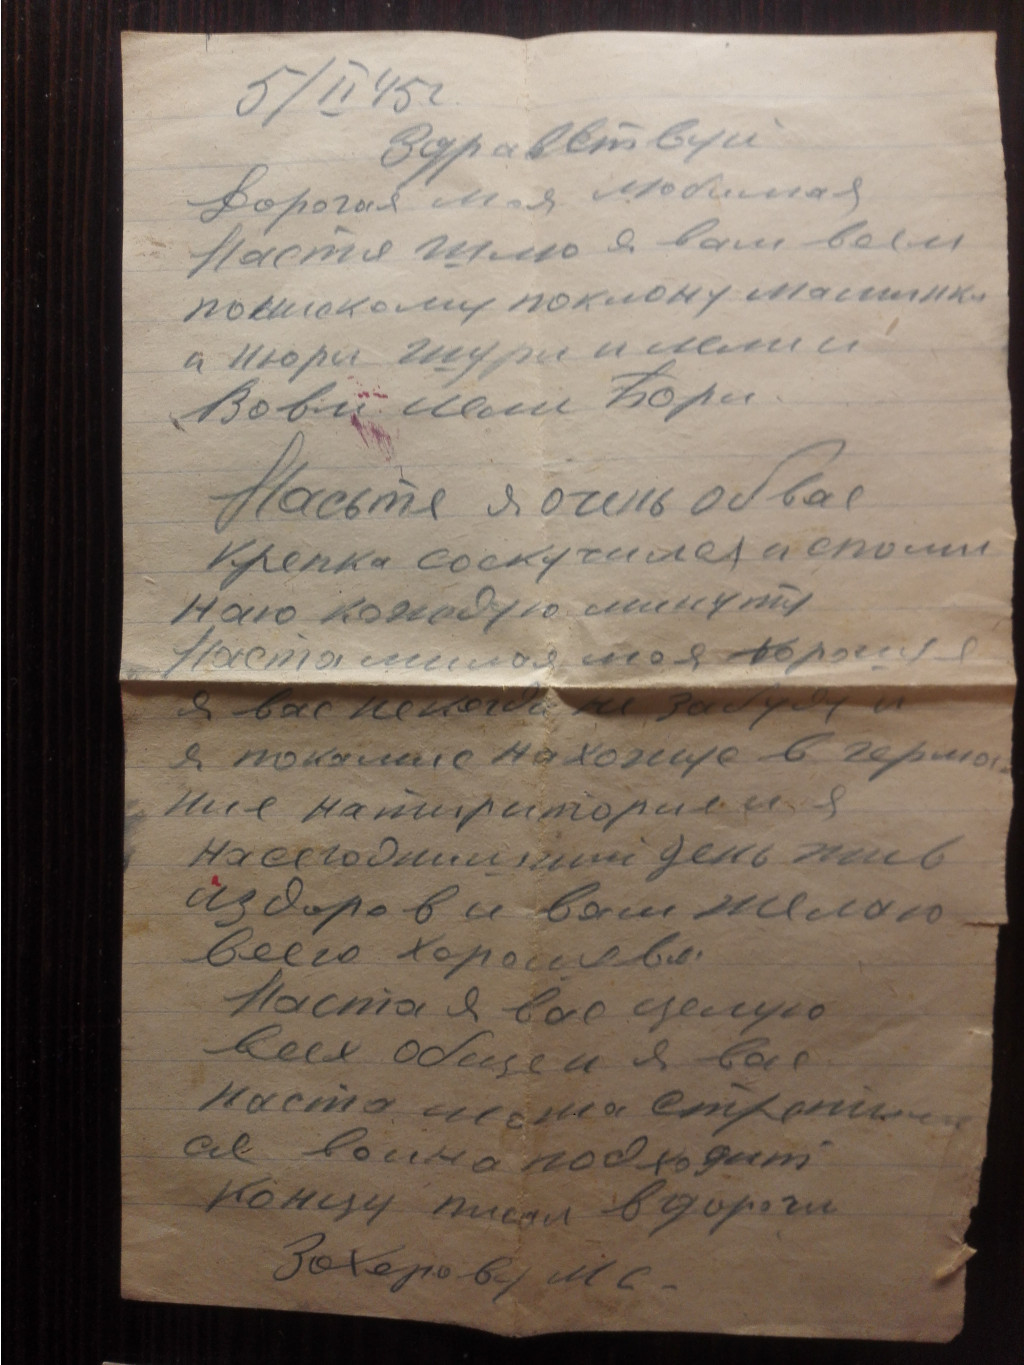 5/II 45г.
Здравствуй
Дорогая моя любимая
Настя шлю я вам всем
понискому поклону маминки
и Нюри шури и лели и
Вови лели Бори.
Насьтя я очень об вас
крепка соскучился и споми
наю кождую минуту
Настя милая моя хорошая
я вас некогда не забуду и
я покамис нахожус в герма
ние натириторие и я
насегоднишний день жив
издоров и вам желаю
всего хорошева
Настя я вас целую
всех общем я вас
наста
ся воина подходит
концу писал вдороги
Захерову М С.